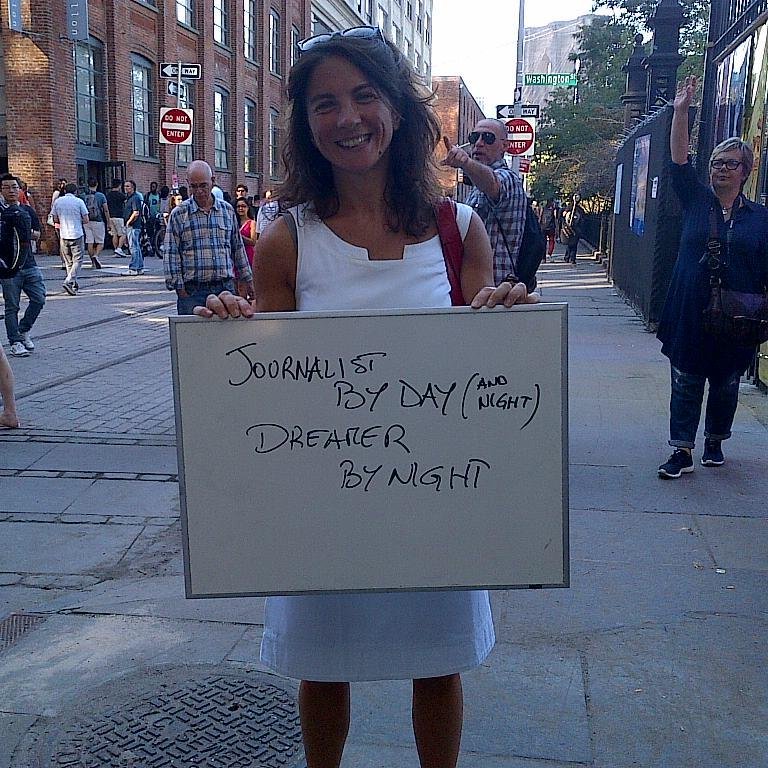 ONE WAY
DO NOT
ENTER
Washington
DO NOT
ENTER
JOURNALIST
BY DAY (AND NIGHT)
DREAMER
BY NIGHT